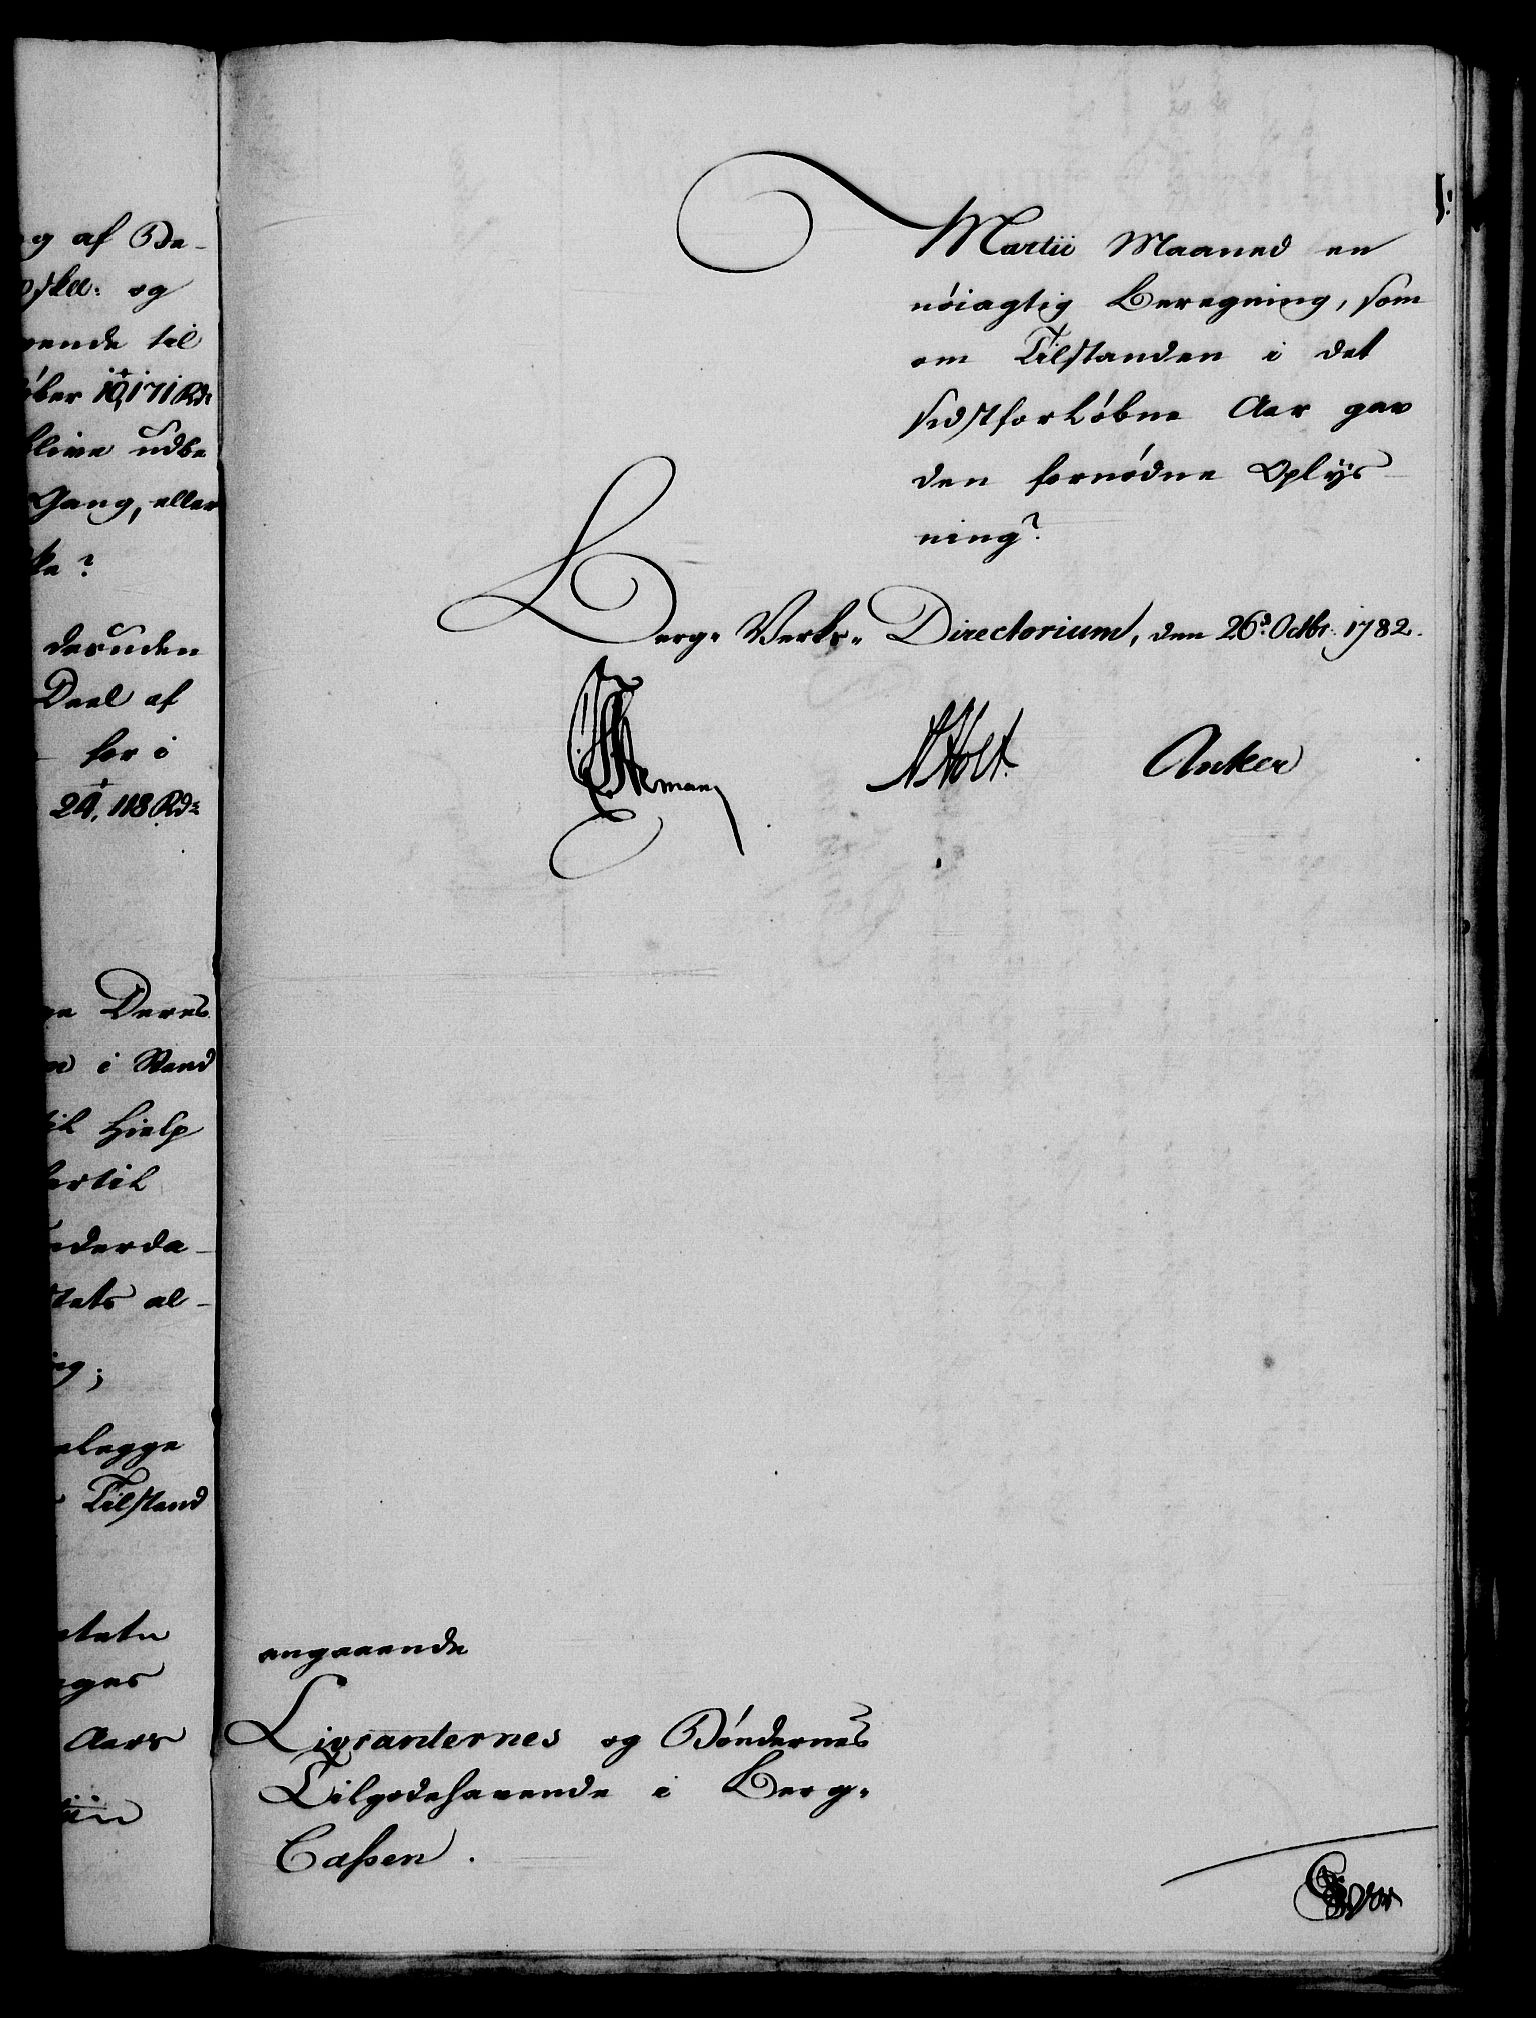 g af Be-
og
ende til
10,171 Rd
blive udbe
Gang, eller
ke?
desuden
Deel af
for i
24,118 Rd
Deres
i Stand
til Hielp
hertil
underda-
tets al-
ng;
elegge
Tilstand
Aars
Martii Maaned en
nöiagtig Beregning, som
om Tilstanden i det
sidstforløbne Aar gav
den fornødne Oplys-
ning?
Berg-Verks-Directorium, den 26de Octbr. 1782.
Holt Anker
angaaende
Livranternes og Bøndernes
Tilgodehavende i Berg-
Cassen.